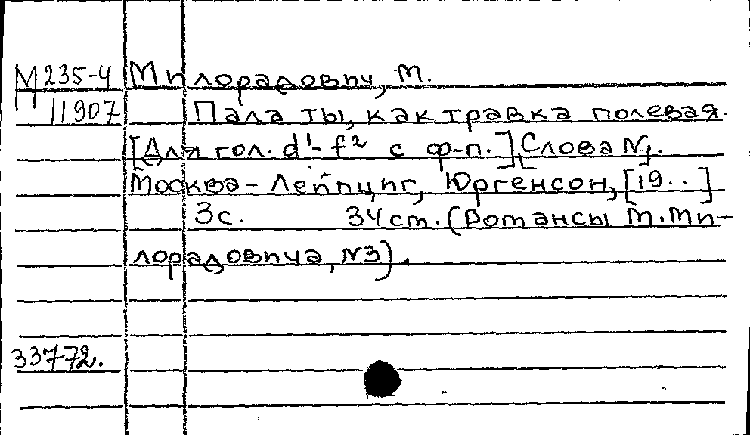 М 235-4 Милорадович, М.
11907 Пала ты, как травка полевая.
[Для гол. d¹-f² с ф-п.] Слова N.
Москва-Лейпциг, Юргенсон, [19..]
3с. 34 ст. (Романсы М. Ми-
лорадовича, N3).
33772.